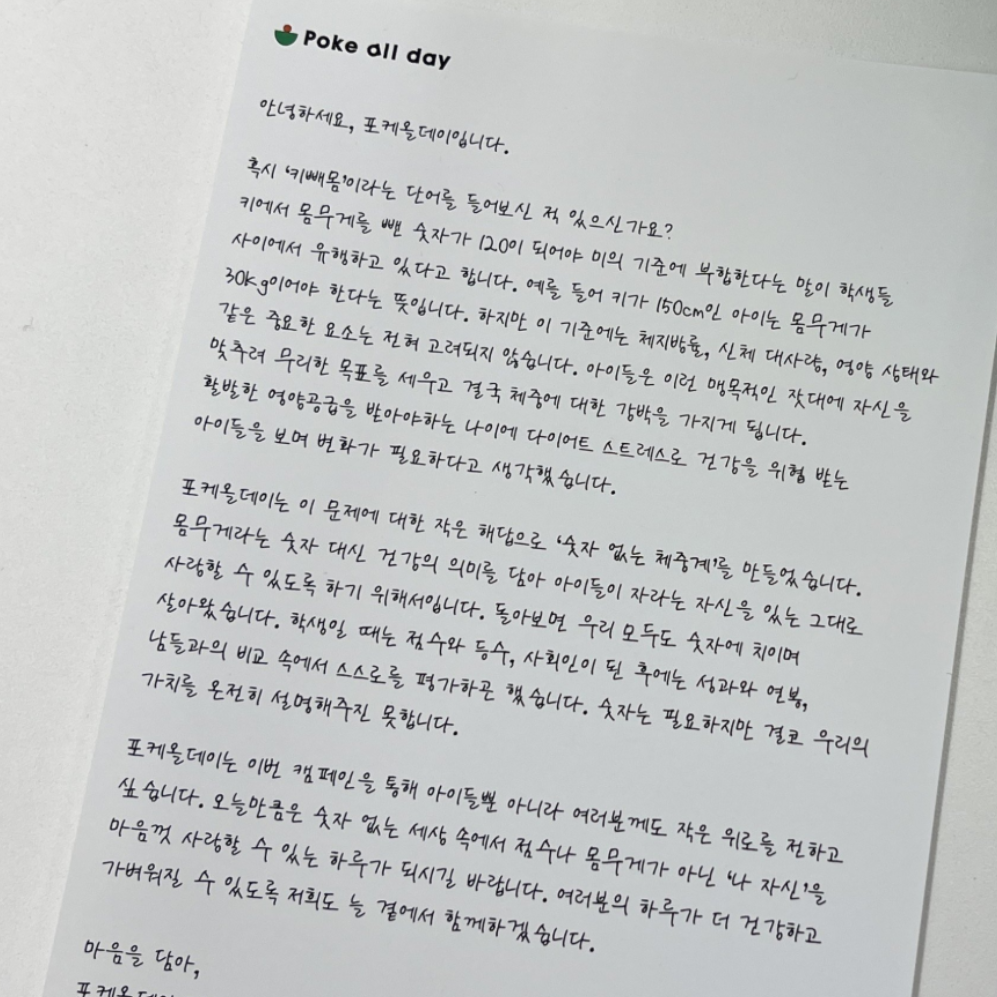 Poke all day
안녕하세요, 포케올데이입니다.
혹시 '키빼몸'이라는 단어를 들어보신 적 있으신가요?
키에서 몸무게를 뺀 숫자가 120이 되어야 미의 기준에 부합한다는 말이 학생들
사이에서 유행하고 있다고 합니다. 예를 들어 키가 150cm인 아이는 몸무게가
30kg이어야 한다는 뜻입니다. 하지만 이 기준에는 체지방률, 신체 대사량, 영양 상태와
같은 중요한 요소는 전혀 고려되지 않습니다. 아이들은 이런 맹목적인 잣대에 자신을
맞추려 무리한 목표를 세우고 결국 체중에 대한 강박을 가지게 됩니다.
활발한 영양공급을 받아야하는 나이에 다이어트 스트레스로 건강을 위협 받는
아이들을 보며 변화가 필요하다고 생각했습니다.
포케올데이는 이 문제에 대한 작은 해답으로 '숫자 없는 체중계'를 만들었습니다.
몸무게라는 숫자 대신 건강의 의미를 담아 아이들이 자라는 자신을 있는 그대로
사랑할 수 있도록 하기 위해서입니다. 돌아보면 우리 모두도 숫자에 치이며
살아왔습니다. 학생일 때는 점수와 등수, 사회인이 된 후에는 성과와 연봉,
남들과의 비교 속에서 스스로를 평가하곤 했습니다. 숫자는 필요하지만 결코 우리의
가치를 온전히 설명해주진 못합니다.
포케올데이는 이번 캠페인을 통해 아이들뿐 아니라 여러분께도 작은 위로를 전하고
싶습니다. 오늘만큼은 숫자 없는 세상 속에서 점수나 몸무게가 아닌 '나 자신'을
마음껏 사랑할 수 있는 하루가 되시길 바랍니다. 여러분의 하루가 더 건강하고
가벼워질 수 있도록 저희도 늘 곁에서 함께하겠습니다.
마음을 담아,
포케올데이